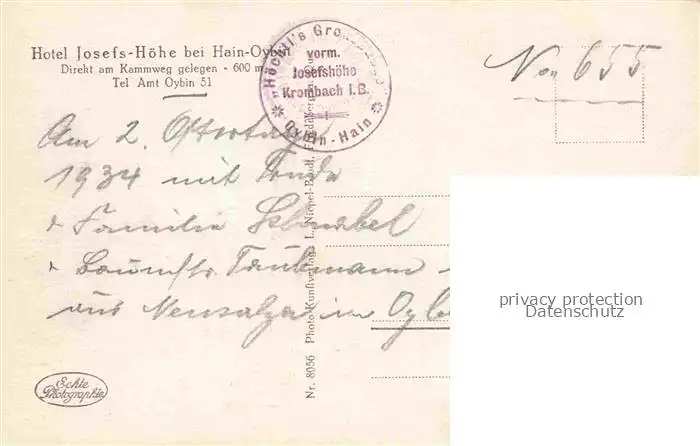 Hotel Josefs-Höhe bei Hain-Oybin
Direkt am Kammweg gelegen - 600 m
Tel Amt Oybin 51
vorm.
Josefshöhe
Krombach i.B.
Oybin-Hain
655
Am 2. Ostertag
1934 mit
+ Familie Schnabel
+ Taubmann
aus Neusalza im Oyb
Nr. 8056 Photo-Kunstverlag
Echte
Photographie
privacy protection
Datenschutz